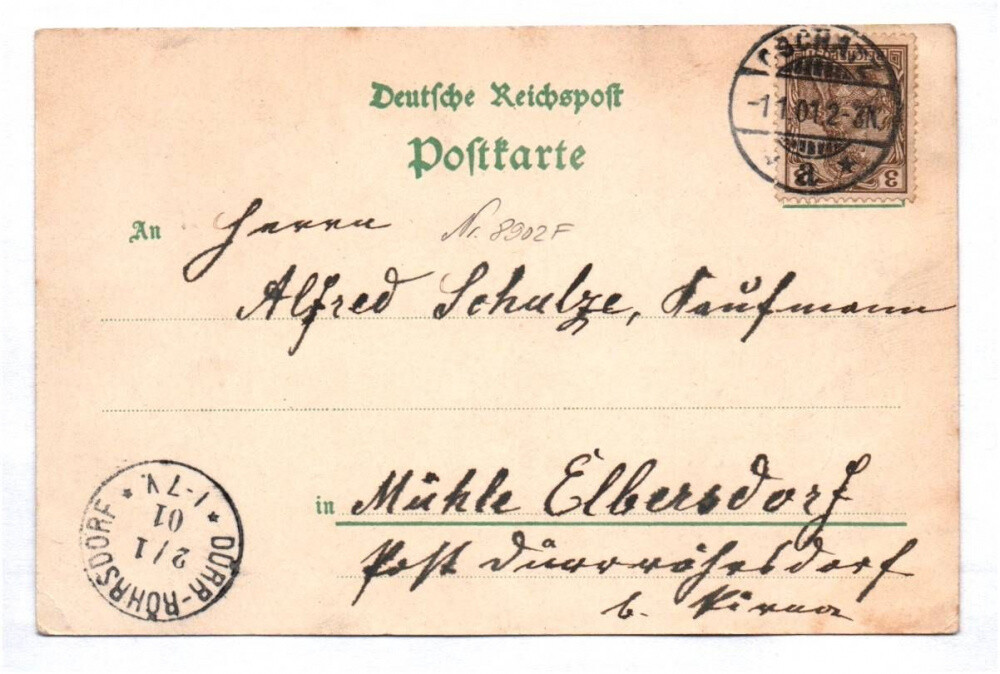 Deutsche Reichspost
Postkarte
-1 1 01 2-3N.
a
3
An Herrn
Nr. 8902F
Alfred Schulze, Kaufmann
in Mühle Elbersdorf
Post Dürrröhrsdorf
b. Pirna
DÜRR-RÖHRSDORF
2/1
01
7-7V.